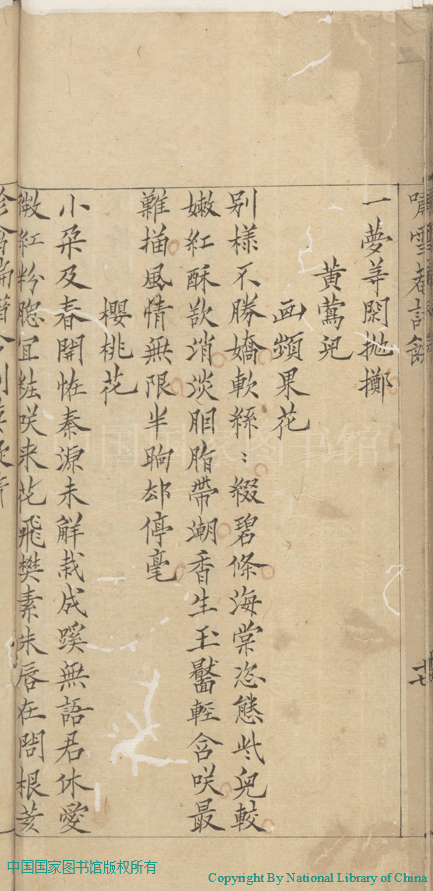 嘯雪菴詩餘
十七
一夢等閑拋擲
黃鶯兒
画頻果花
別樣不勝嬌軟絲〻綴碧條海棠恣態此兒較
嫩紅酥欲消淡胭脂帶潮香生玉靨輕含咲最
難描風情無限半晌却停毫
櫻桃花
小朶及春開恠秦源未觧栽成蹊無語君休愛
微紅粉腮宜粧咲来花飛樊素朱唇在問根荄
中国国家图书馆
中国国家图书馆版权所有
Copyright By National Library of China